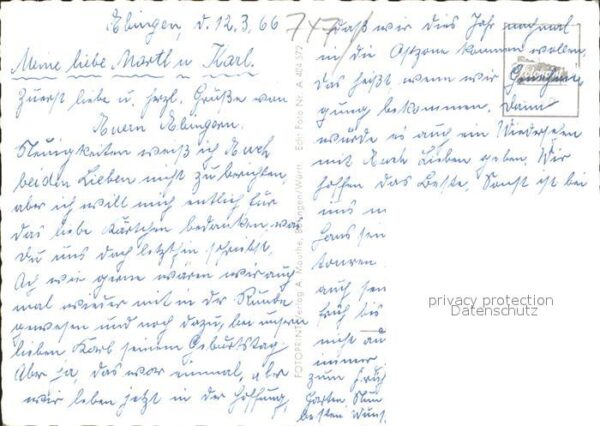 Ebingen, d. 12.3.66
Meine liebe Martl u Karl.
Zuerst liebe u. herzl. Grüße von
Euern Ebingern.
Neuigkeiten weiß ich Euch
beiden Lieben nicht zu berichten,
aber ich will mich entlich für
das liebe Kärtchen bedanken, was
Du uns doch letzthin schriebst.
Ach wie gerne wären wir auch
mal wieder mit in der Runde
gewesen und noch dazu, bei unsern
lieben Karl seinem Geburtstag.
Aber ja, das war einmal, aber
wir leben jetzt in der Hoffnung,
747
daß wir dies Jahr nochmal
in die Ostzone kommen wollen,
das heißt wenn wir Genehmi-
gung bekommen. Dann
würde es auch ein Wiedersehen
mit Euch Lieben geben. Wir
hoffen das Beste. Sonst ist bei
uns
Hans
touren
auch
früh bis
nicht
immer
zum
Garten.
besten
FOTOPRINT Verlag A. Mauthe, Ebingen/Württ. Edh. Foto Nr. A 404 372
privacy protection
Datenschutz